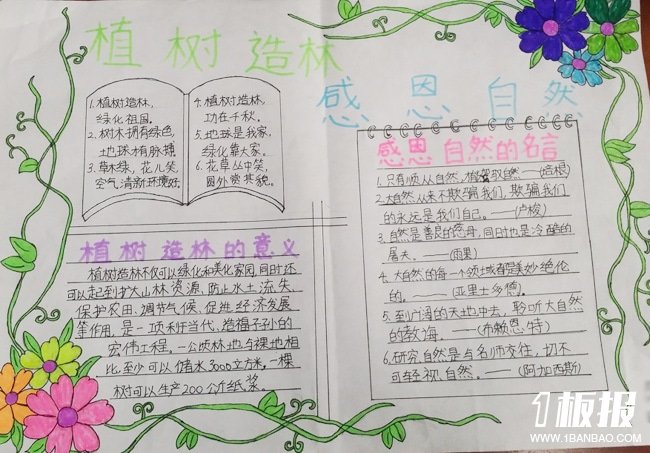 植树造林
感恩自然
1.植树造林,
绿化祖国。
2.树木拥有绿色,
地球才有脉搏
3.草木绿,花儿笑,
空气清新环境好
4.植树造林,
功在千秋。
5.地球是我家,
绿化靠大家。
6.花草丛中笑,
园外赏其貌。
植树造林的意义
植树造林不仅可以绿化和美化家园,同时还
可以起到扩大山林资源、防止水土流失、
保护农田、调节气候、促进经济发展
等作用,是一项利于当代、造福子孙的
宏伟工程。一公顷林地与裸地相
比,至少可以储水3000立方米。一棵
树可以生产200公斤纸浆。
感恩自然的名言
1.只有顺从自然,才能驾驭自然——(培根)
2.大自然从来不欺骗我们,欺骗我们
的永远是我们自己。——(卢梭)
3.自然是善良的慈母,同时也是冷酷的
屠夫。——(雨果)
4.大自然的每一个领域都是美妙绝伦
的。——(亚里士多德)。
5.到广阔的天地中去,聆听大自然
的教诲。——(布赖恩·特)
6.研究自然是与名师交往,切不
可轻视自然。——(阿加西斯)
1板报
WWW.1BANBAO.COM